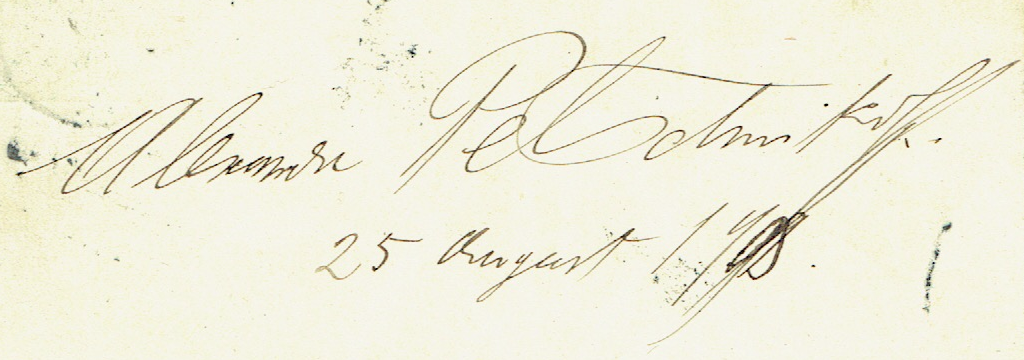 Alexandre Petschnikoff.
25 August